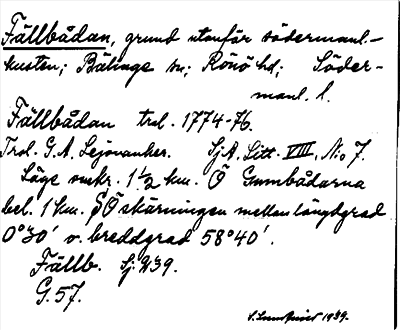 Fällbådan, grund utanför södermanl.-
kusten; Bälinge sn; Rönö hd; Söder-
manl. l.
Fällbådan trol. 1774-76.
Trol. G. A. Lejonanker. SjA. Litt. VIII, No 7.
Läge omkr. 1 1/2 km. Ö Gumbådarna
bel. 1 km. SÖ skärningen mellan längdgrad
0°30' o. breddgrad 58°40'.
Fällb. Sj: 939.
G. 57.
1939.